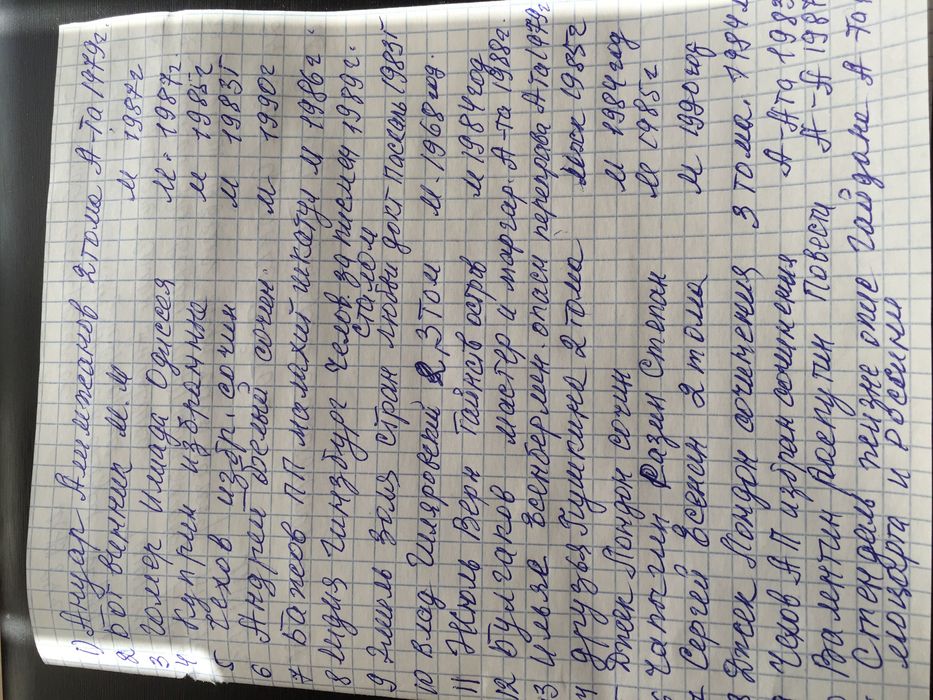 1) Ануар Алимжанов 2 тома А-та 1979г.
2 Ботвинник М. М М 1987г
3 Гомер Илиада Одисея М. 1987г.
4 Куприн избранное М 1985г
5 Чехов избр. сочин М 1983г
6 Андрей Белый сочин. М 1990г
7 Бажов П П малахит шкатул М 1986г.
8 Лидия Гинзбург челов за писмен столом 1989г.
9 Эмиль Золя стран любви докт Паскаль 1983г
10 Влад Гиляровский 2,3 том М. 1968 год.
11 Жюль Верн Таинств остров М 1984 год
12 Булгаков мастер и маргар. А-та 1988г.
13 Илья Есенберлин опасн переправа А-та 1979г
4 друзья Пушкина 2 тома 1985г
Джек Лондон сочин М 1984 год
Чапыгин Разин Степан М 1985г
Сергей Есенин 2 тома М 1990 год
8 Джек Лондон сочинения 3 тома. 1984
Чехов А П избран сочинения А-Ата 198
Валентин Распутин Повести А-А 1987
Стендаль жизнеопис гайдана А-та
моцарта и Россини